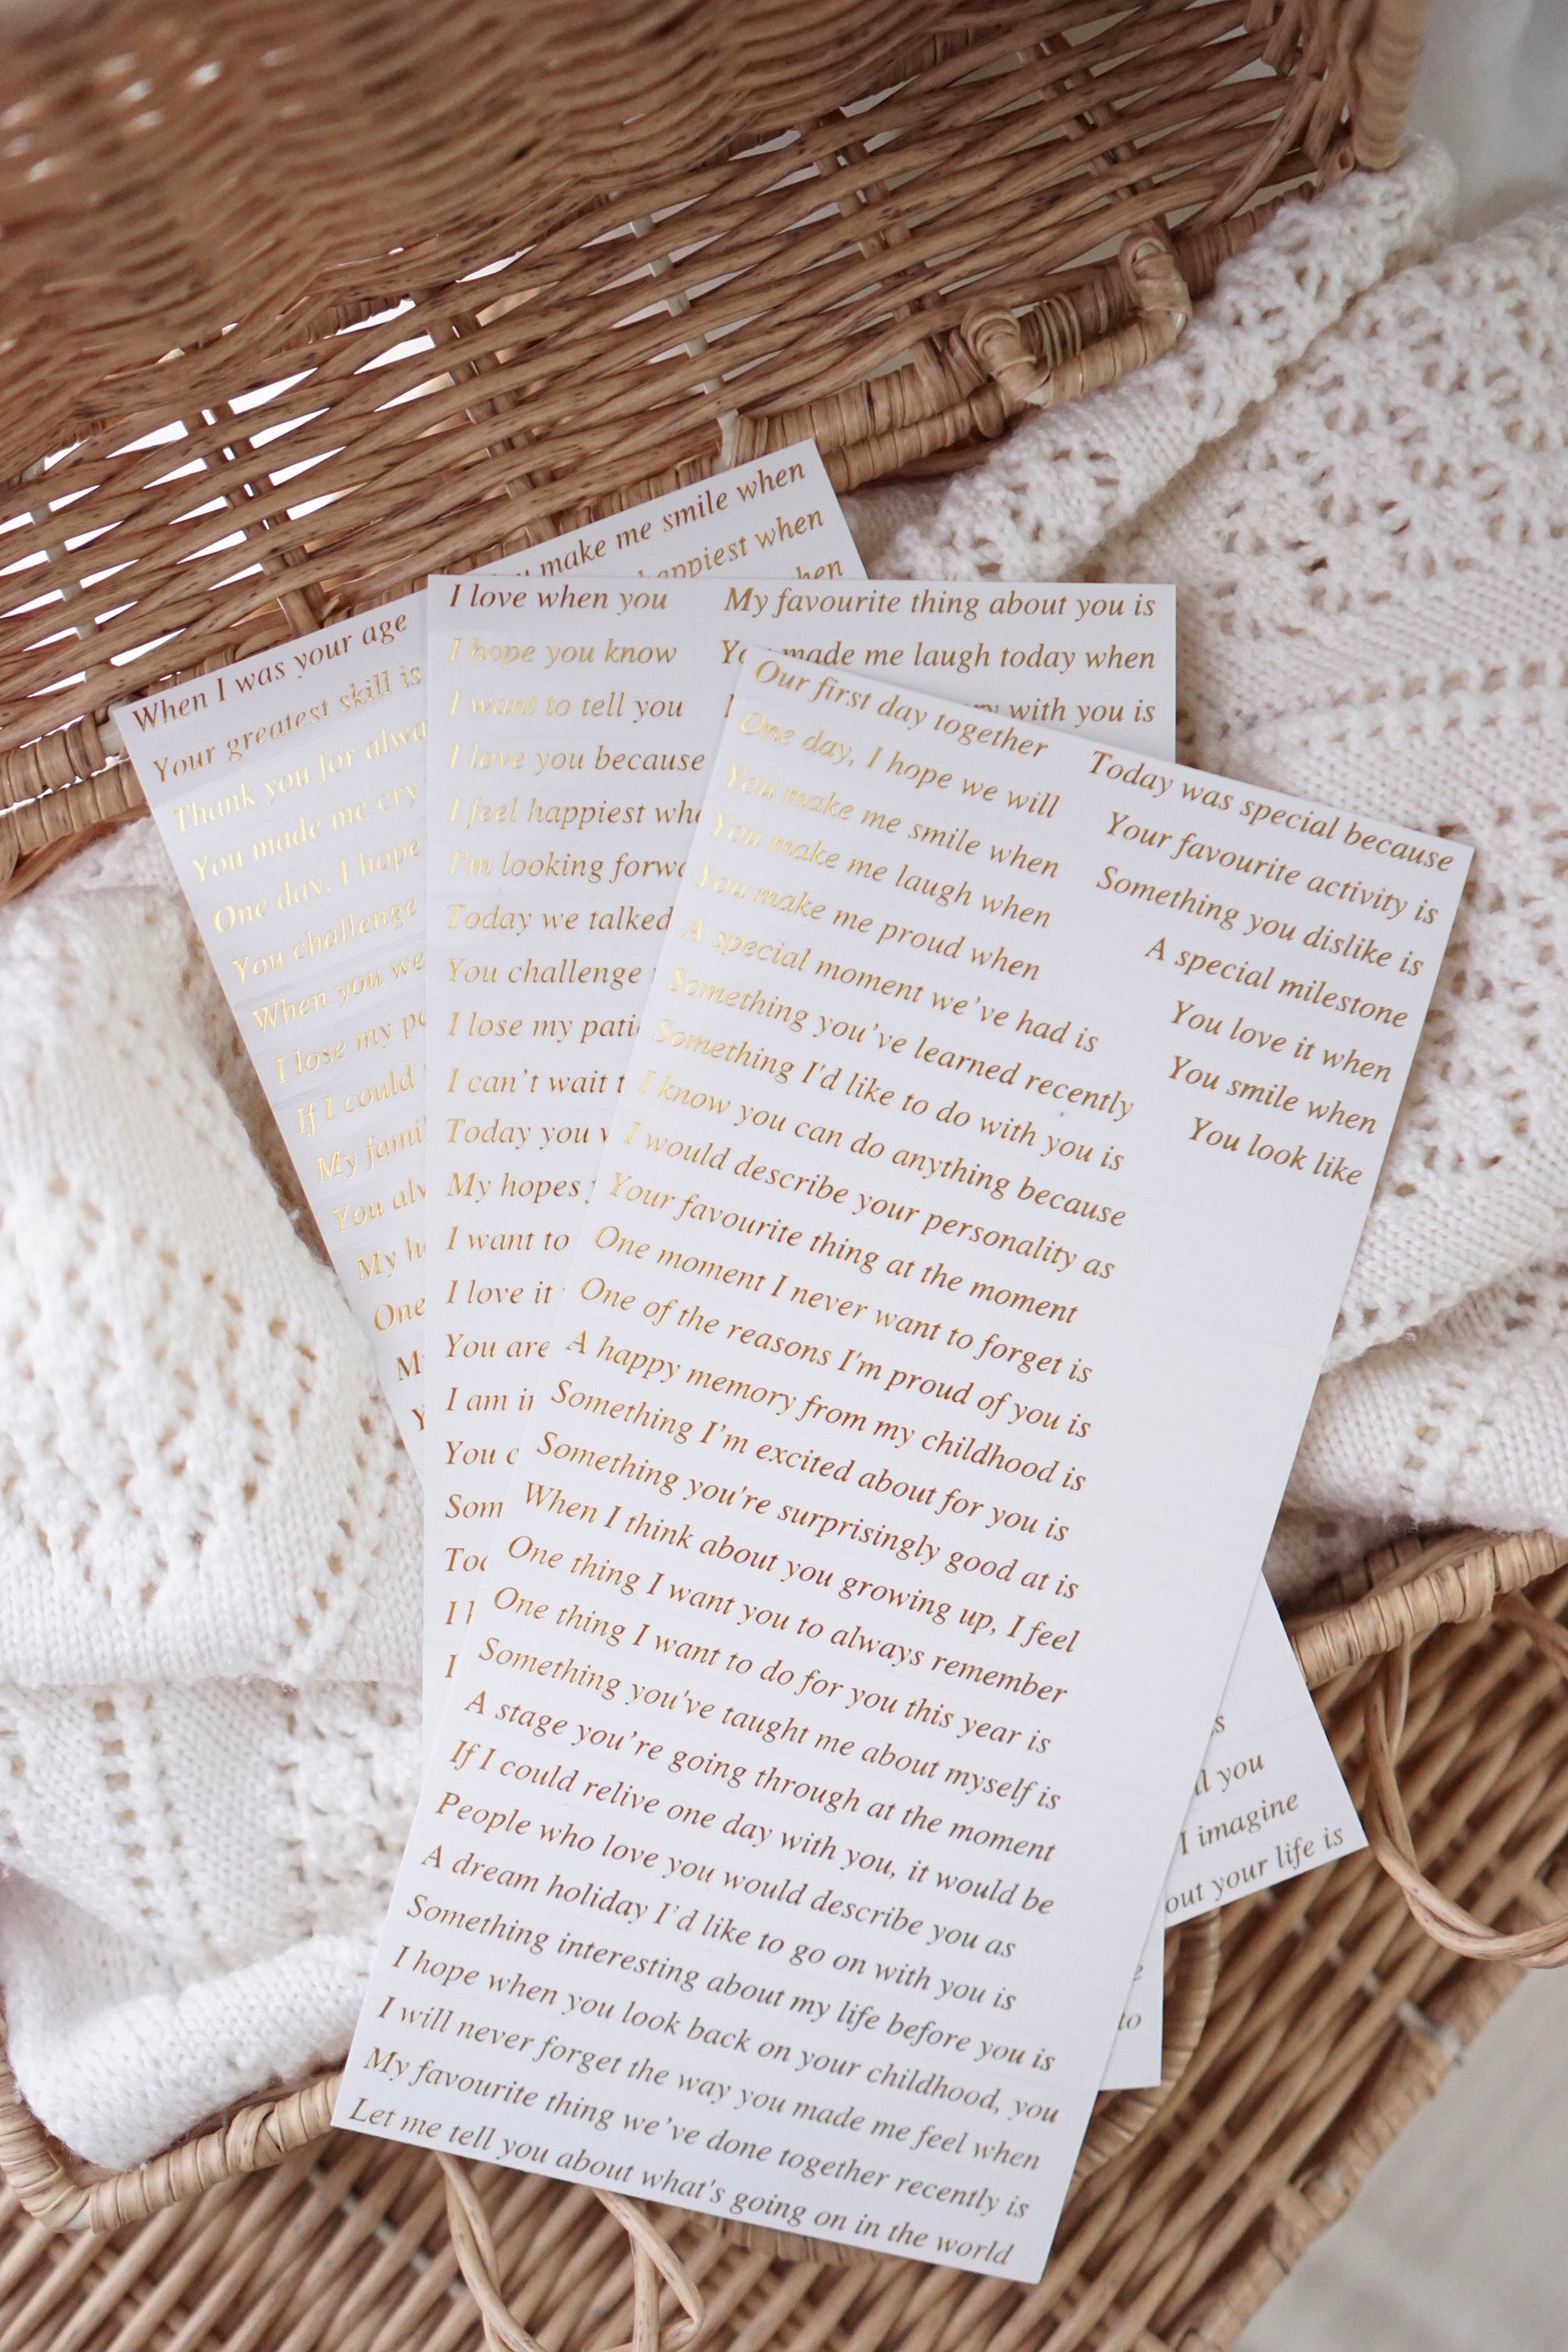 make me smile when
happiest when
when
When I was your age
Your greatest skill is
Thank you for
You made me cry
One day, I hope
You challenge
When you
I lose my
If I could
My
You
My
One
I love when you
I hope you know
I want to tell you
I love you because
I feel happiest
I'm looking
Today we talked
You challenge
I lose my
I can't wait
Today you
My hopes
I want to
I love it
You are
I am
You
I
I
My favourite thing about you is
made me laugh today when
with you is
Our first day together
One day, I hope we will
You make me smile when
You make me laugh when
You make me proud when
A special moment we've had is
Something you've learned recently
Something I'd like to do with you is
I know you can do anything because
I would describe your personality as
Your favourite thing at the moment
One moment I never want to forget is
One of the reasons I'm proud of you is
A happy memory from my childhood is
Something I'm excited about for you is
Something you're surprisingly good at is
When I think about you growing up, I feel
One thing I want you to always remember
One thing I want to do for you this year is
Something you've taught me about myself is
A stage you're going through at the moment
If I could relive one day with you, it would be
People who love you would describe you as
A dream holiday I'd like to go on with you is
Something interesting about my life before you is
I hope when you look back on your childhood, you
I will never forget the way you made me feel when
My favourite thing we've done together recently is
Let me tell you about what's going on in the world
Today was special because
Your favourite activity is
Something you dislike is
A special milestone
You love it when
You smile when
You look like
you
I imagine
your life is
to